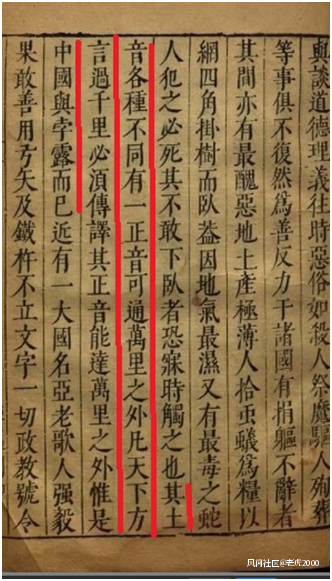 與談道德理義往時惡俗如殺人祭魔驅人殉葬
等事俱不復然爲善反力于諸國有捐軀不辭者
其間亦有最醜惡地土產極薄人拾虫蟻爲糧以
網四角掛樹而臥葢因地氣最濕又有最毒之蛇
人犯之必死其不敢下臥者恐寐時觸之也其土
音各種不同有一正音可通萬里之外凡天下方
言過千里必湏傳譯其正音能達萬里之外惟是
中國與孛露而已近有一大國名亞老歌人强毅
果敢善用弓矢及鐵杵不立文字一切政教號令
风闻社区@老虎2000